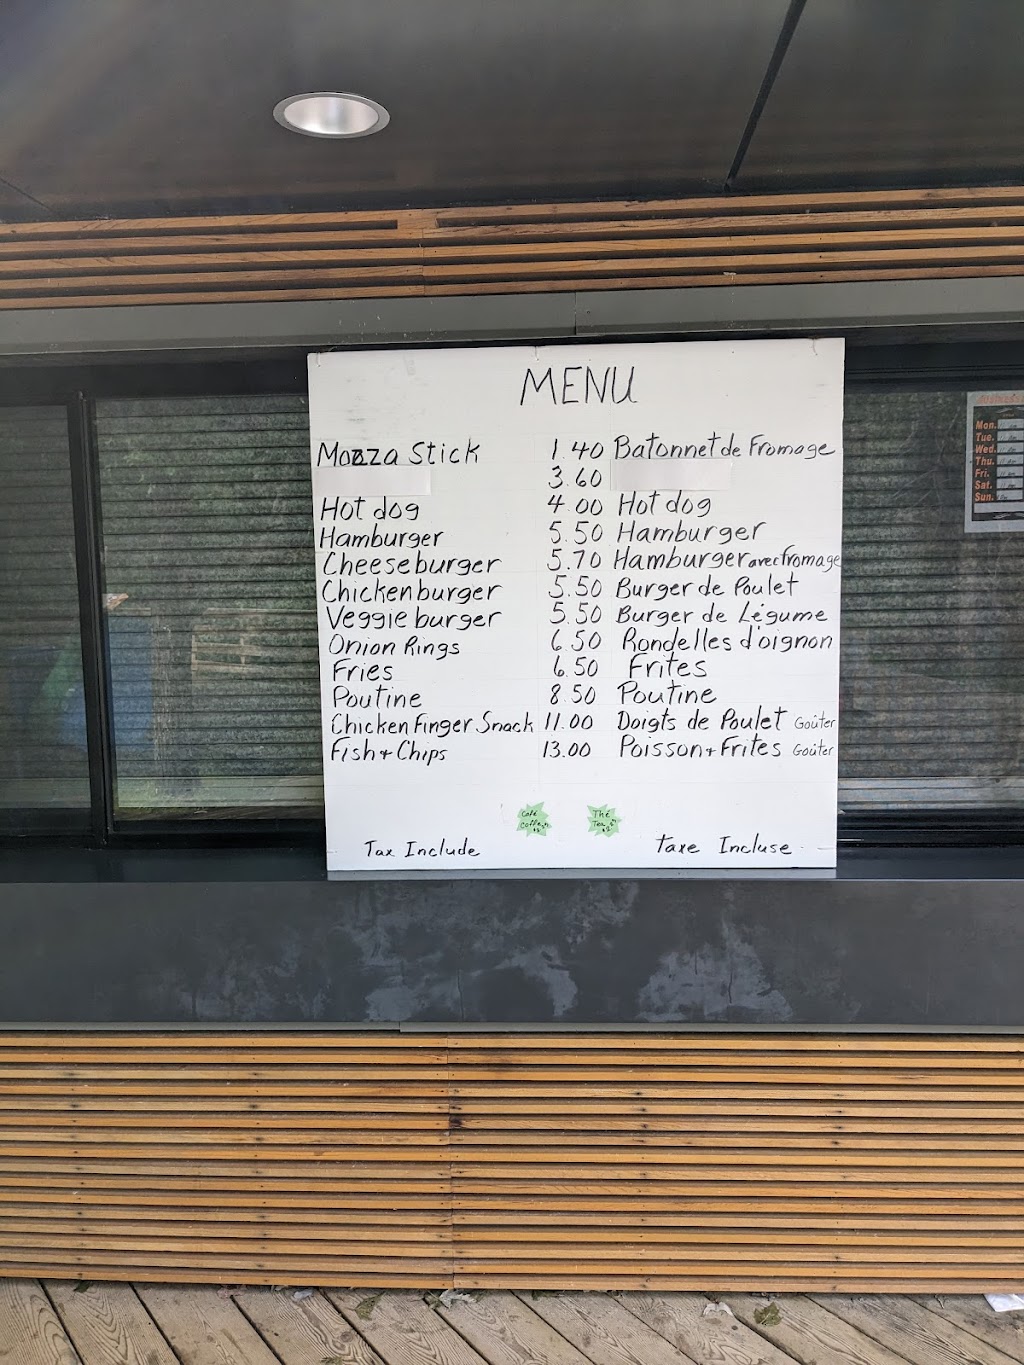 MENU
Mozza Stick 1.40 Batonnet de Fromage
3.60
Hot dog 4.00 Hot dog
Hamburger 5.50 Hamburger
Cheeseburger 5.70 Hamburger avec fromage
Chickenburger 5.50 Burger de Poulet
Veggieburger 5.50 Burger de Légume
Onion Rings 6.50 Rondelles d'oignon
Fries 6.50 Frites
Poutine 8.50 Poutine
Chicken Finger Snack 11.00 Doigts de Poulet Goûter
Fish + Chips 13.00 Poisson + Frites Goûter
Café
Coffee
Thé
Tea
Tax Include Taxe Incluse
Mon.
Tue.
Wed.
Thu.
Fri.
Sat.
Sun.